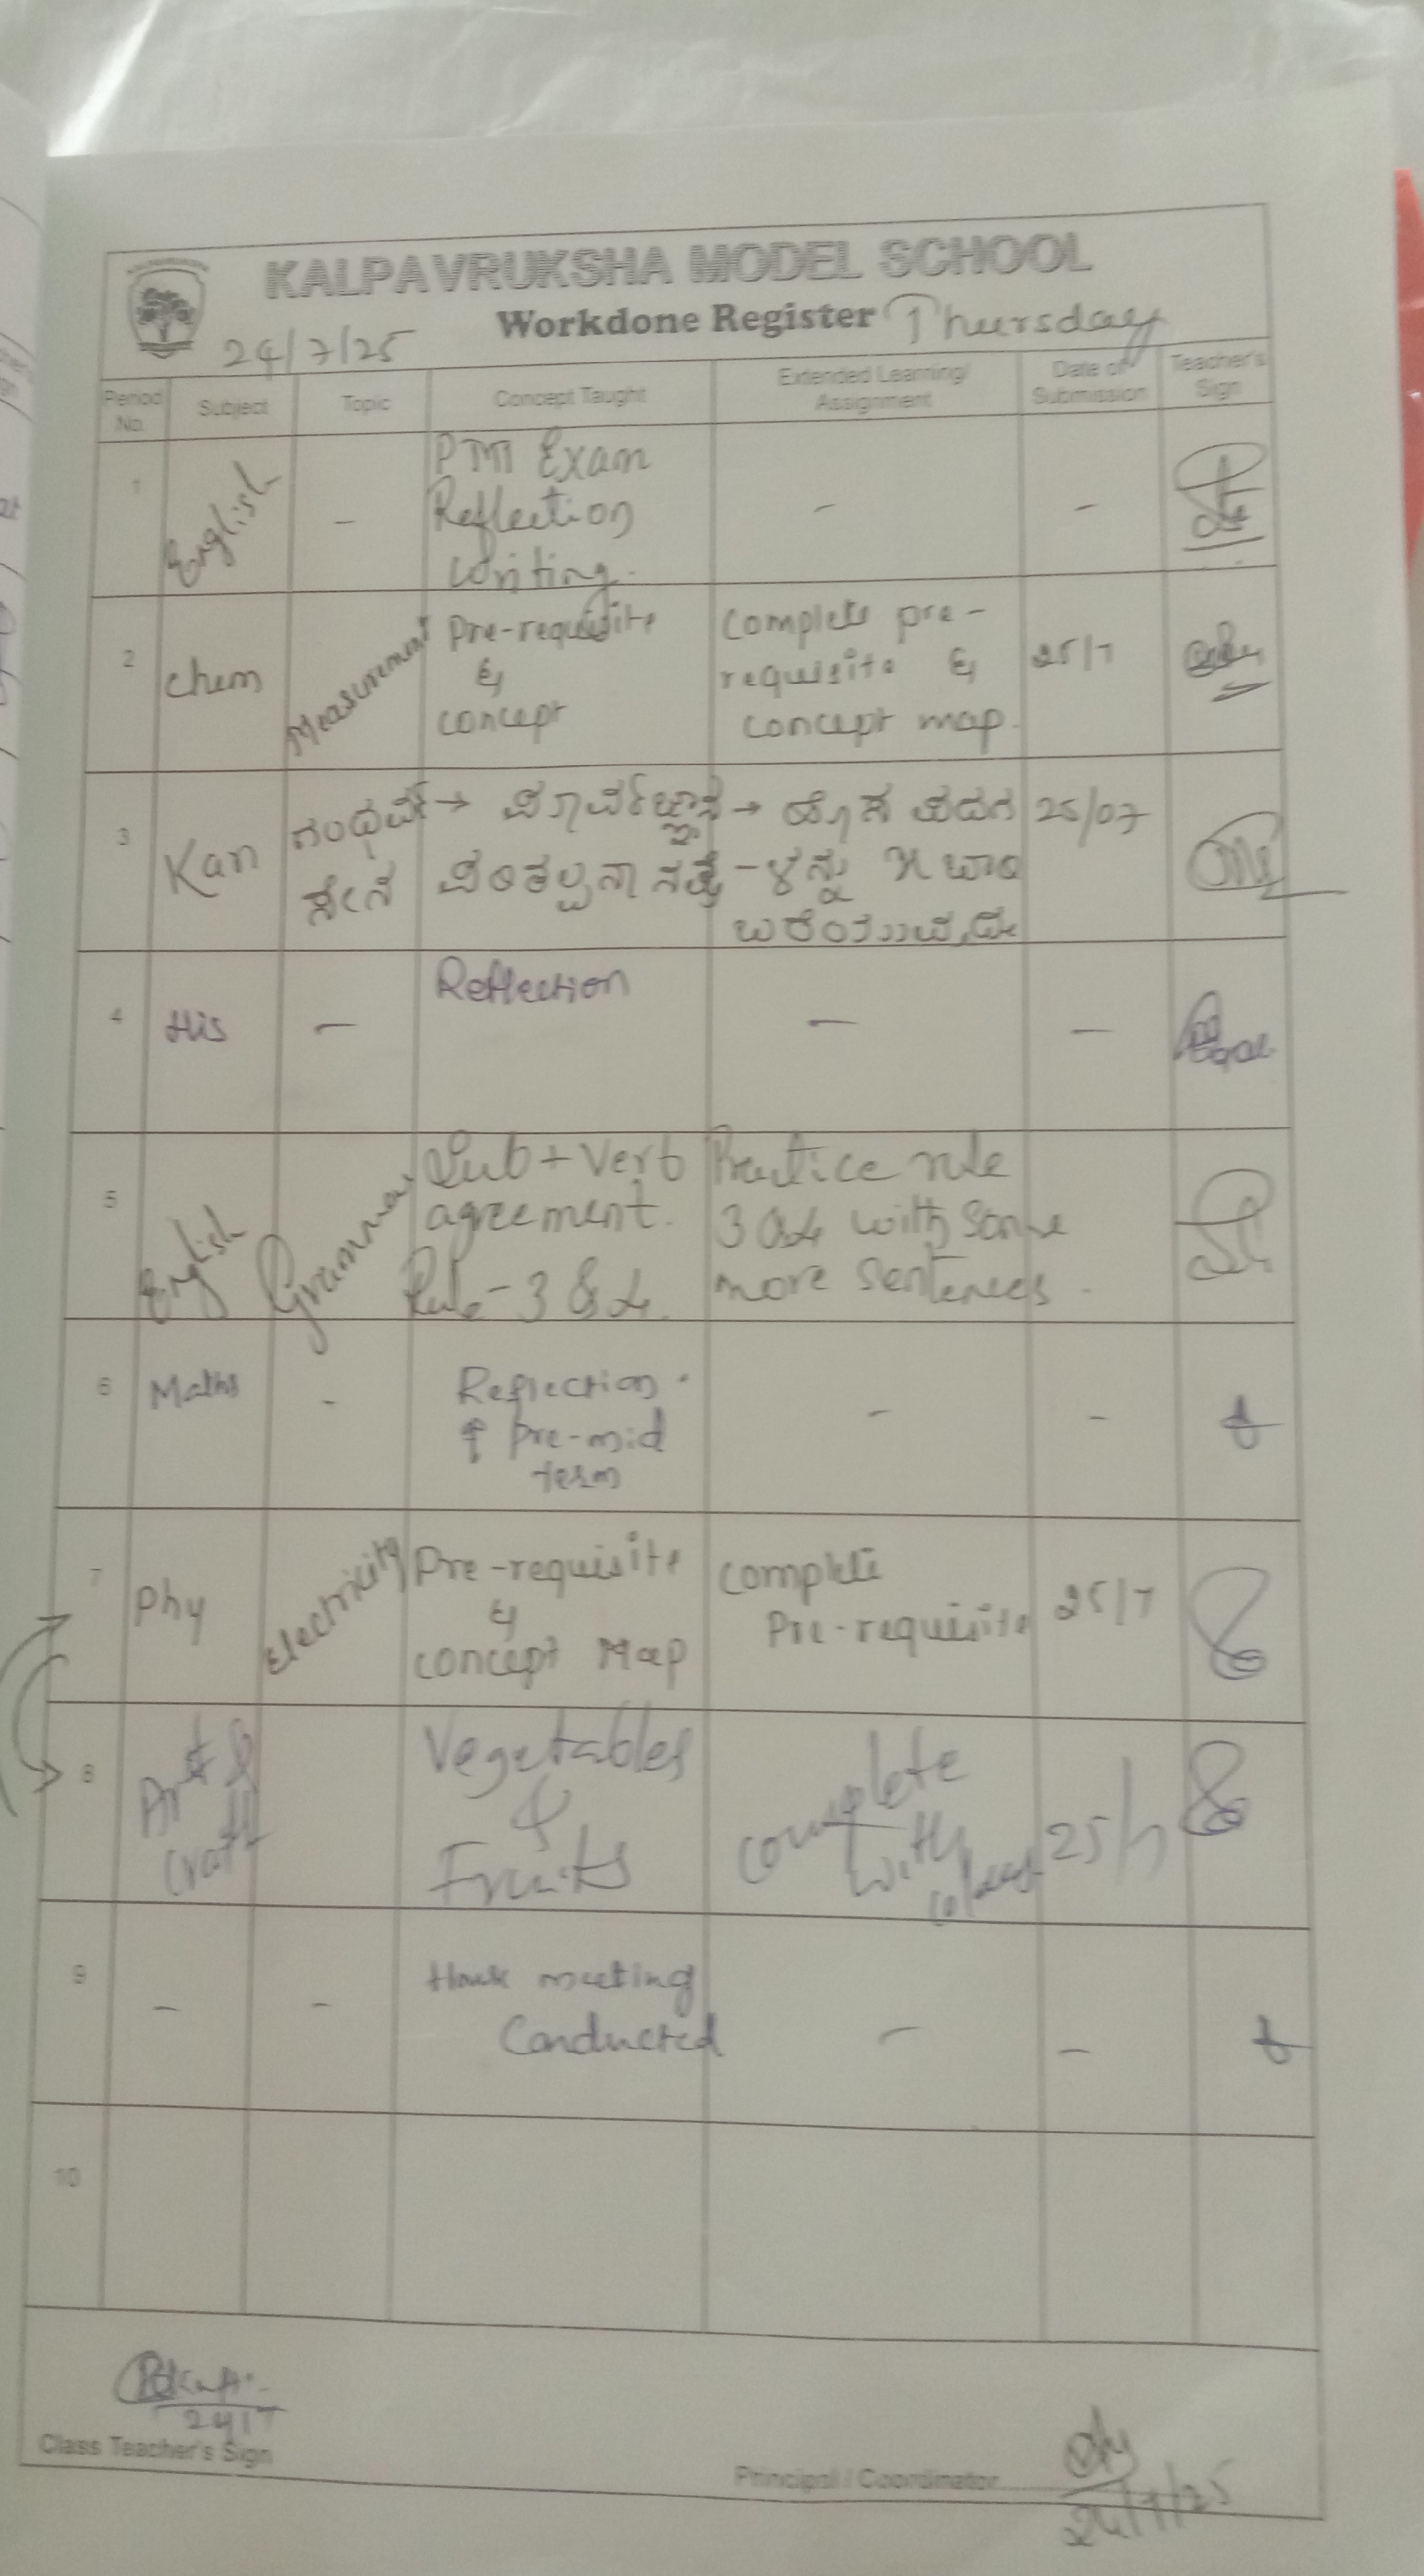 KALPAVRUKSHA MODEL SCHOOL
Workdone Register Thursday
24/7/25
Period No. Subject Topic Concept Taught Extended Learning/ Assignment Date of Submission Teacher's Sign
1 English - PMI Exam
Reflection
Writing. - -
2 Chem Measurement Pre-requisite
&
concept
Complete pre-
requisite &
concept map. 25/7
3 Kan ಗಂಧರ್ವ →
ಸೇನೆ
25/07
4 His - Reflection - -
5 English Grammar Sub + Verb
agreement.
Rule - 3 & 4.
Practice rule
3 & 4 with some
more sentences.
6 Maths - Reflection.
Pre-mid
term - -
7 Phy Electricity Pre-requisite
&
concept Map
complete
Pre-requisite 25/7
8 Art &
Craft
Vegetables
&
Fruits
complete
with
colours 25/7
9 - - meeting
Conducted - -
10
24/7
Class Teacher's Sign
Principal / Coordinator
24/7/25